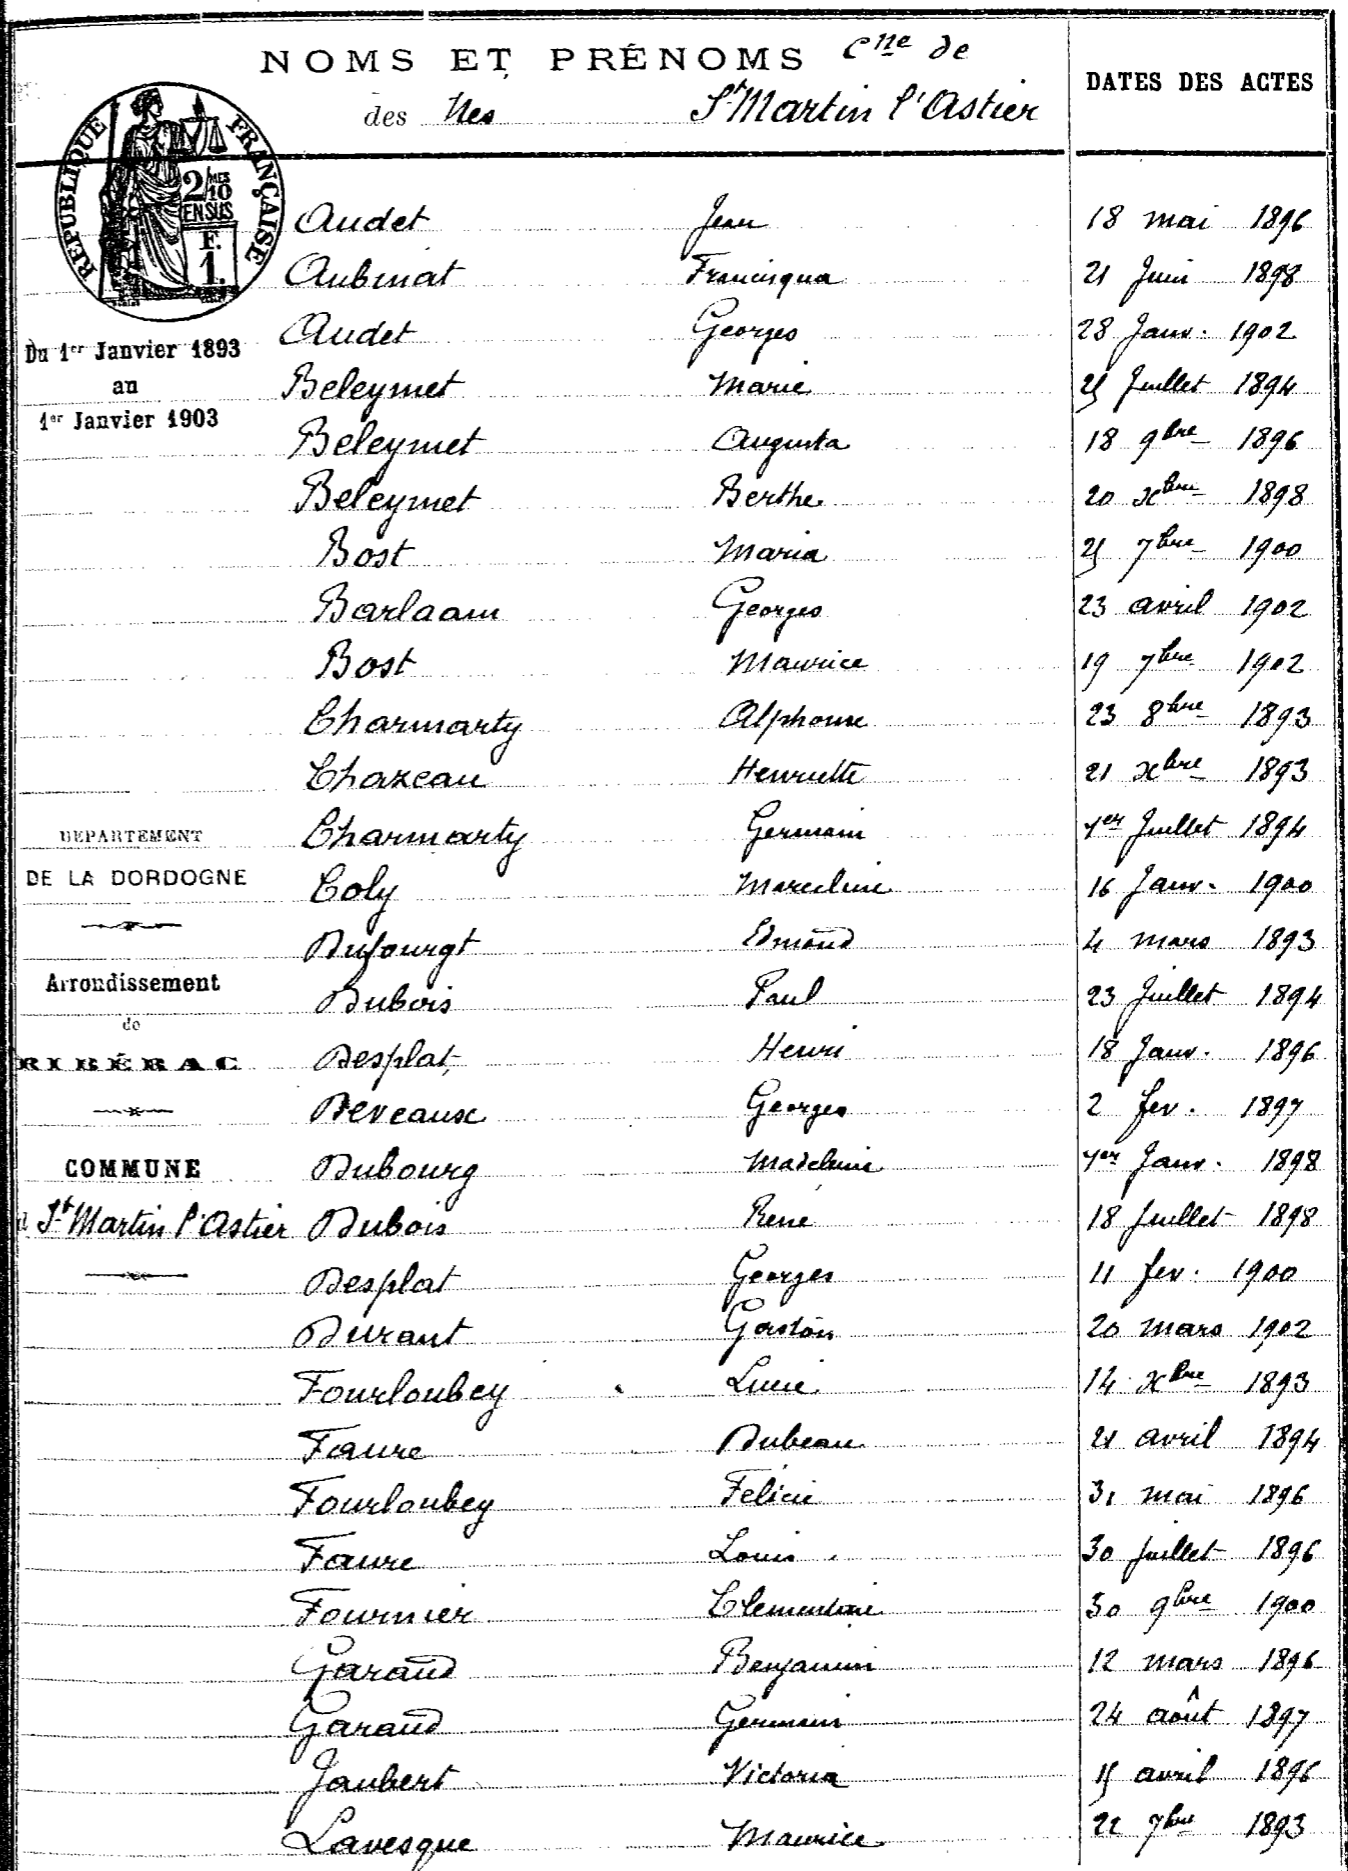 NOMS ET PRÉNOMS Cne de
des Nes St Martin l'Astier
DATES DES ACTES
RÉPUBLIQUE FRANÇAISE
2/10 MES
EN SUS
F.
1.
Du 1er Janvier 1893
au
1er Janvier 1903
DÉPARTEMENT
DE LA DORDOGNE
Arrondissement
de
RIBÉRAC
COMMUNE
St Martin l'Astier
Audet Jean 18 mai 1896
Aubinat Francisqua 21 Juin 1898
Audet Georges 28 Janv. 1902
Beleymet Marie 25 Juillet 1894
Beleymet Augusta 18 9bre 1896
Beleymet Berthe 20 xbre 1898
Bost Maria 25 7bre 1900
Barlaam Georges 23 avril 1902
Bost Maurice 19 7bre 1902
Charmarty Alphonse 23 8bre 1893
Chazeau Henriette 21 xbre 1893
Charmarty Germain 1er Juillet 1894
Coly Marceline 16 Janv. 1900
Dufourgt Edmond 4 mars 1893
Dubois Paul 23 Juillet 1894
Desplat Henri 18 Janv. 1896
Deveaux Georges 2 fev. 1897
Dubourg Madeleine 1er Janv. 1898
Dubois René 18 Juillet 1898
Desplat Georges 11 fev. 1900
Durant Gaston 20 mars 1902
Fourloubey Lucie 14 xbre 1893
Faure Dubeau 21 avril 1894
Fourloubey Félicie 31 mai 1896
Faure Louis 30 Juillet 1896
Fournier Clementine 30 9bre 1900
Garaud Benjamin 12 mars 1896
Garaud Germain 24 août 1897
Jaubert Victoria 15 avril 1896
Lavesque Maurice 22 7bre 1893